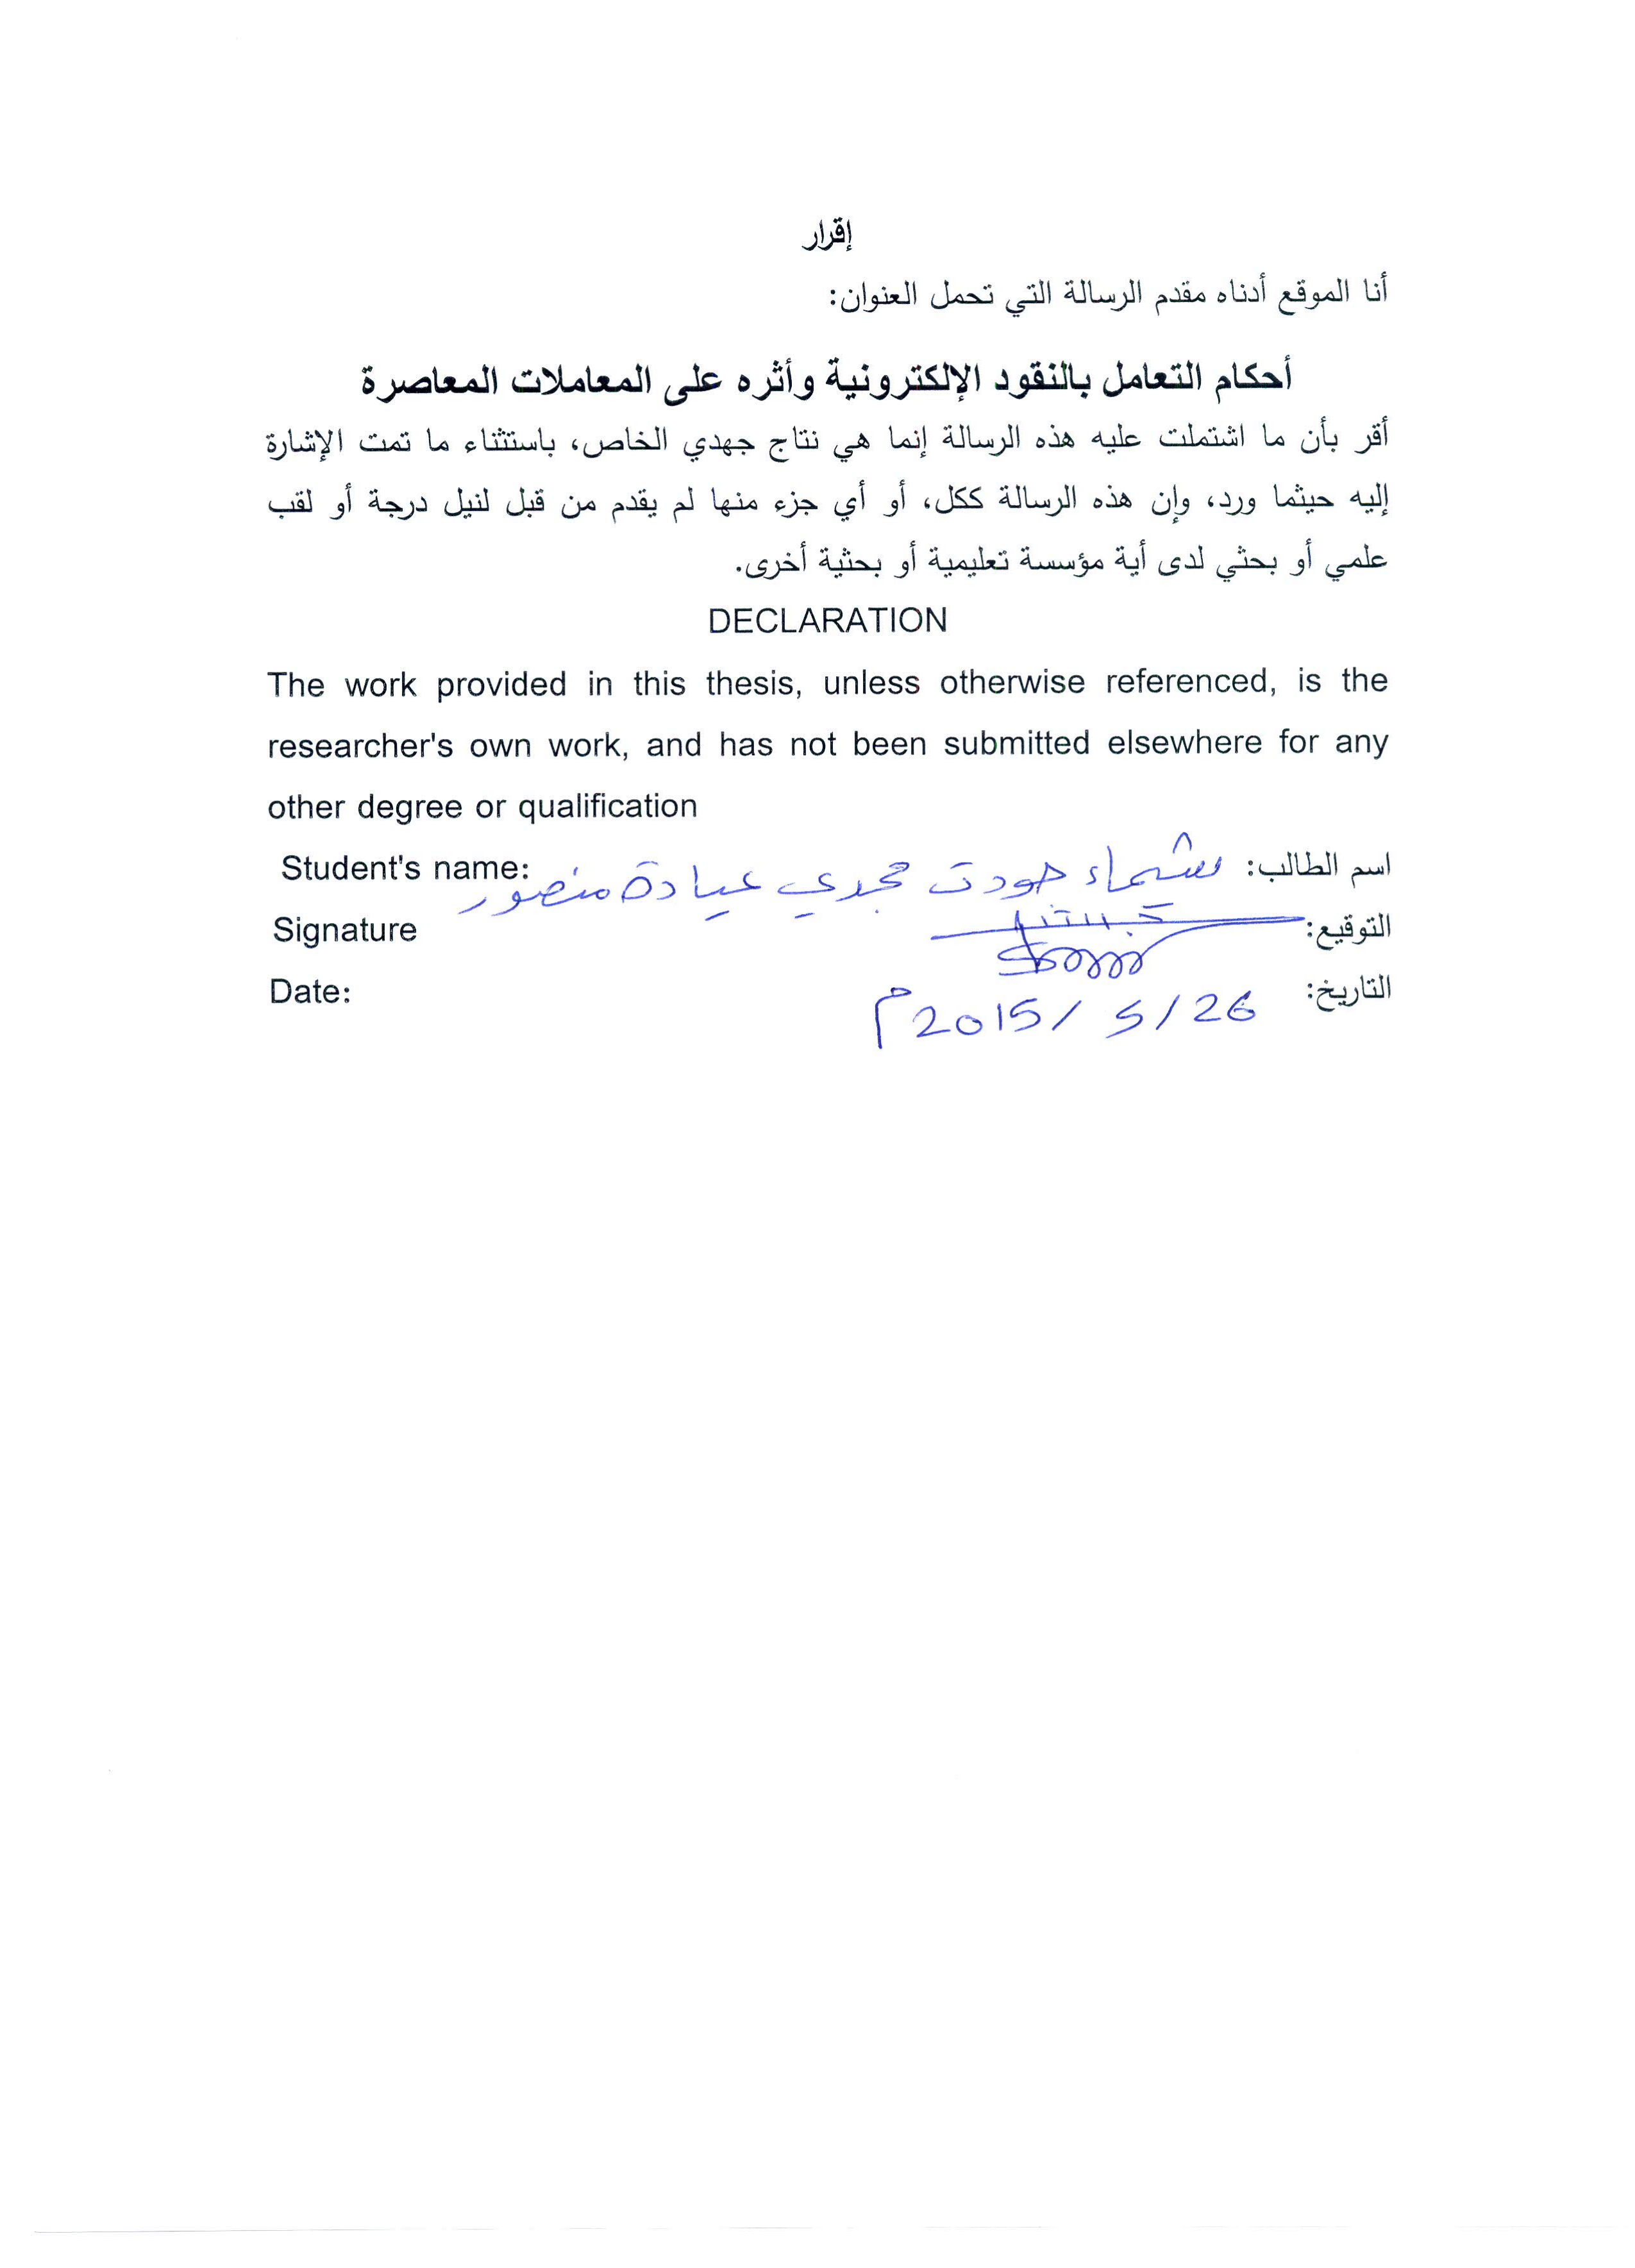 إقرار
أنا الموقع أدناه مقدم الرسالة التي تحمل العنوان:
أحكام التعامل بالنقود الإلكترونية وأثره على المعاملات المعاصرة
أقر بأن ما اشتملت عليه هذه الرسالة إنما هي نتاج جهدي الخاص، باستثناء ما تمت الإشارة
إليه حيثما ورد، وإن هذه الرسالة ككل، أو أي جزء منها لم يقدم من قبل لنيل درجة أو لقب
علمي أو بحثي لدى أية مؤسسة تعليمية أو بحثية أخرى.
DECLARATION
The work provided in this thesis, unless otherwise referenced, is the
researcher's own work, and has not been submitted elsewhere for any
other degree or qualification
Student's name: اسم الطالب: شيماء جودت مجدي عيادة منصور
Signature التوقيع:
Date: التاريخ: 26/ 5 /2015م